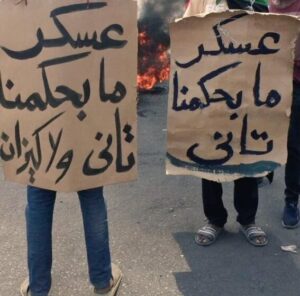 عسكر
ما بحكمنا
تاني ولا كيزان
عسكر
ما بحكمنا
تاني